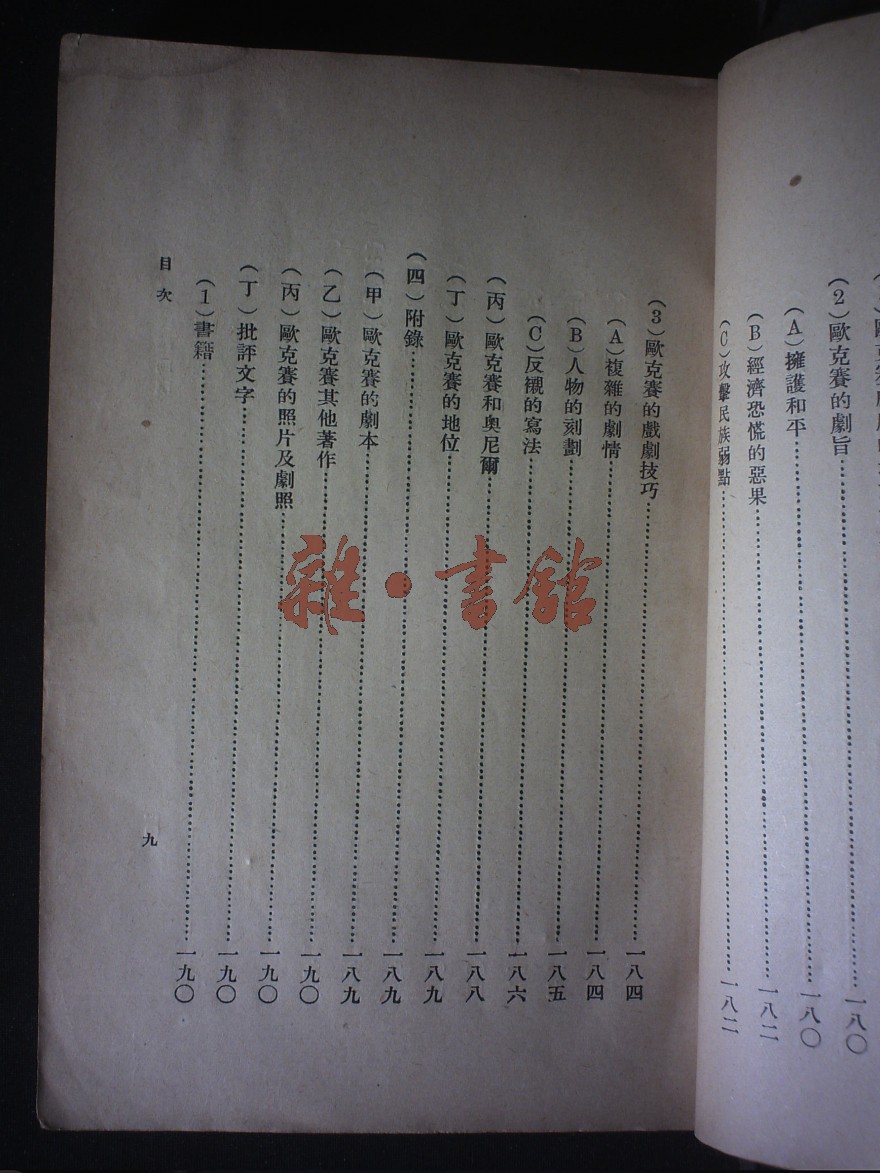 (2)歐克賽的劇旨……一八〇
(A)擁護和平……一八〇
(B)經濟恐慌的惡果……一八二
(C)攻擊民族弱點……一八二
(3)歐克賽的戲劇技巧……一八四
(A)複雜的劇情……一八四
(B)人物的刻劃……一八五
(C)反襯的寫法……一八六
(丙)歐克賽和奧尼爾……一八八
(丁)歐克賽的地位……一八九
(四)附錄……一八九
(甲)歐克賽的劇本……一八九
(乙)歐克賽其他著作……一九〇
(丙)歐克賽的照片及劇照……一九〇
(丁)批評文字……一九〇
(1)書籍……一九〇
目次
九
雜·書館